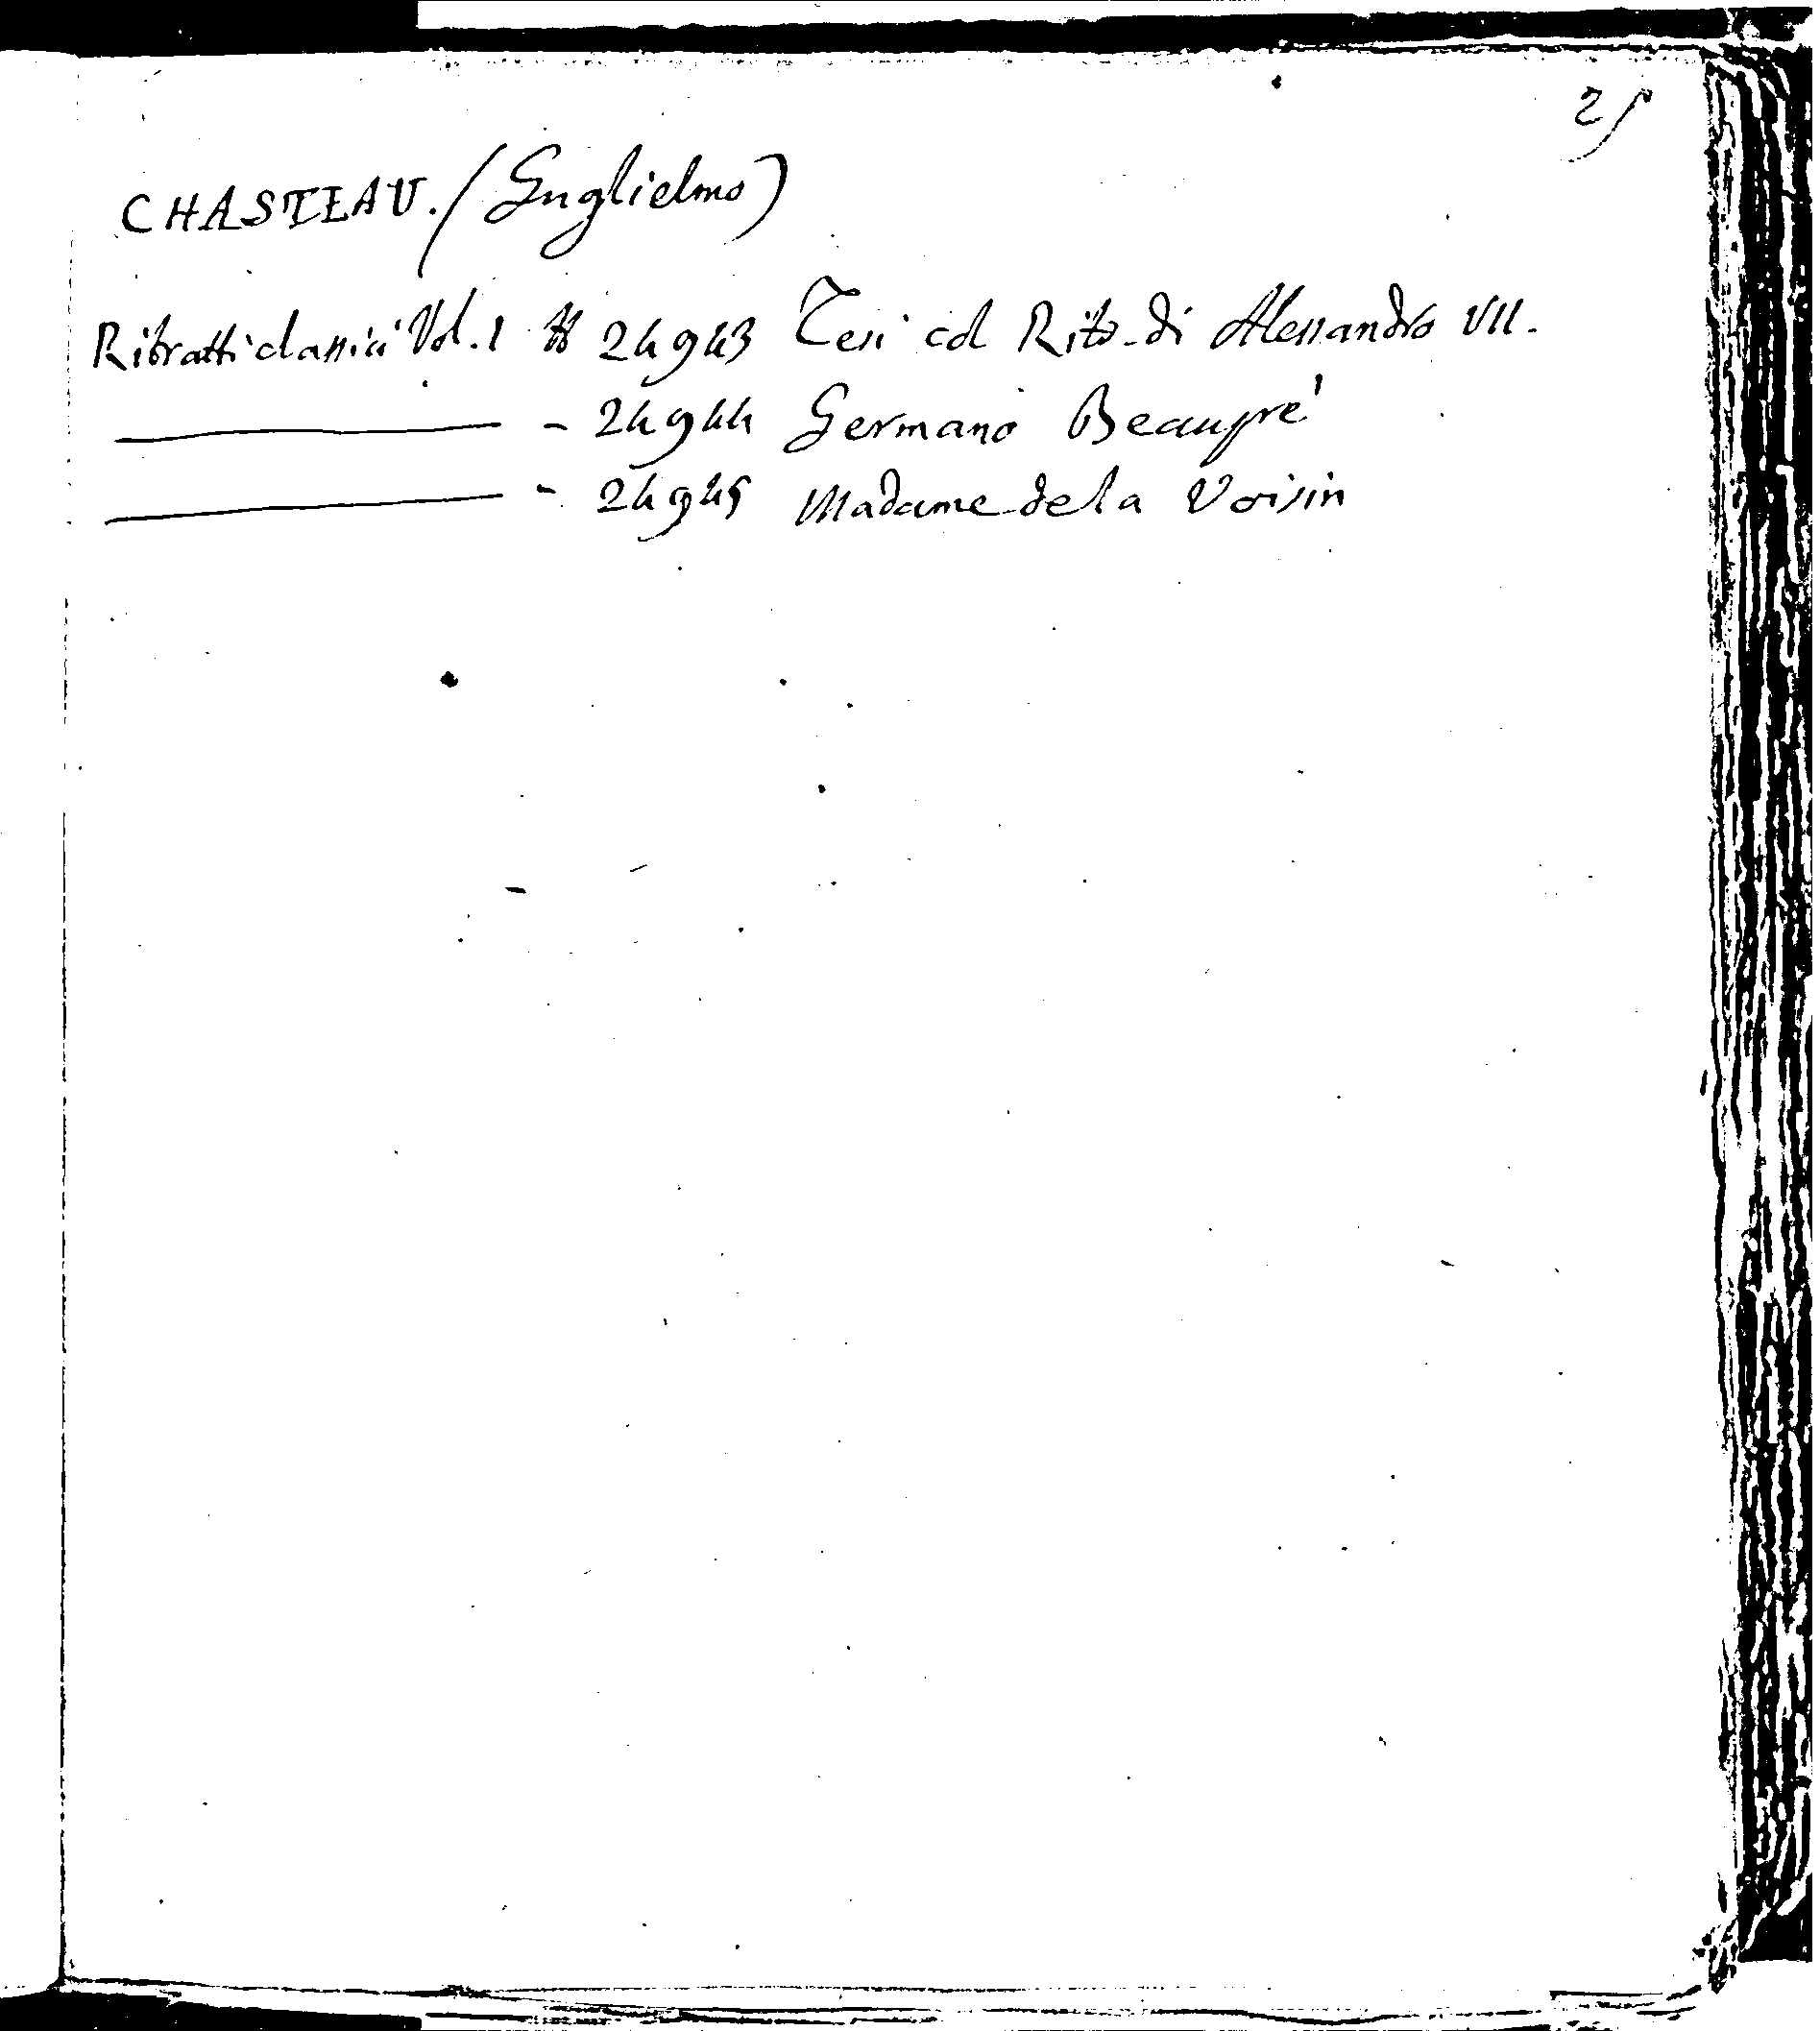 25
CHASTEAU. (Guglielmo)
Ritratti classici Vol. 1 # 24943 Tesi col Rito. di Alessandro VII.
- 24944 Germano Beaupré
- 24945 Madame de la Voisin